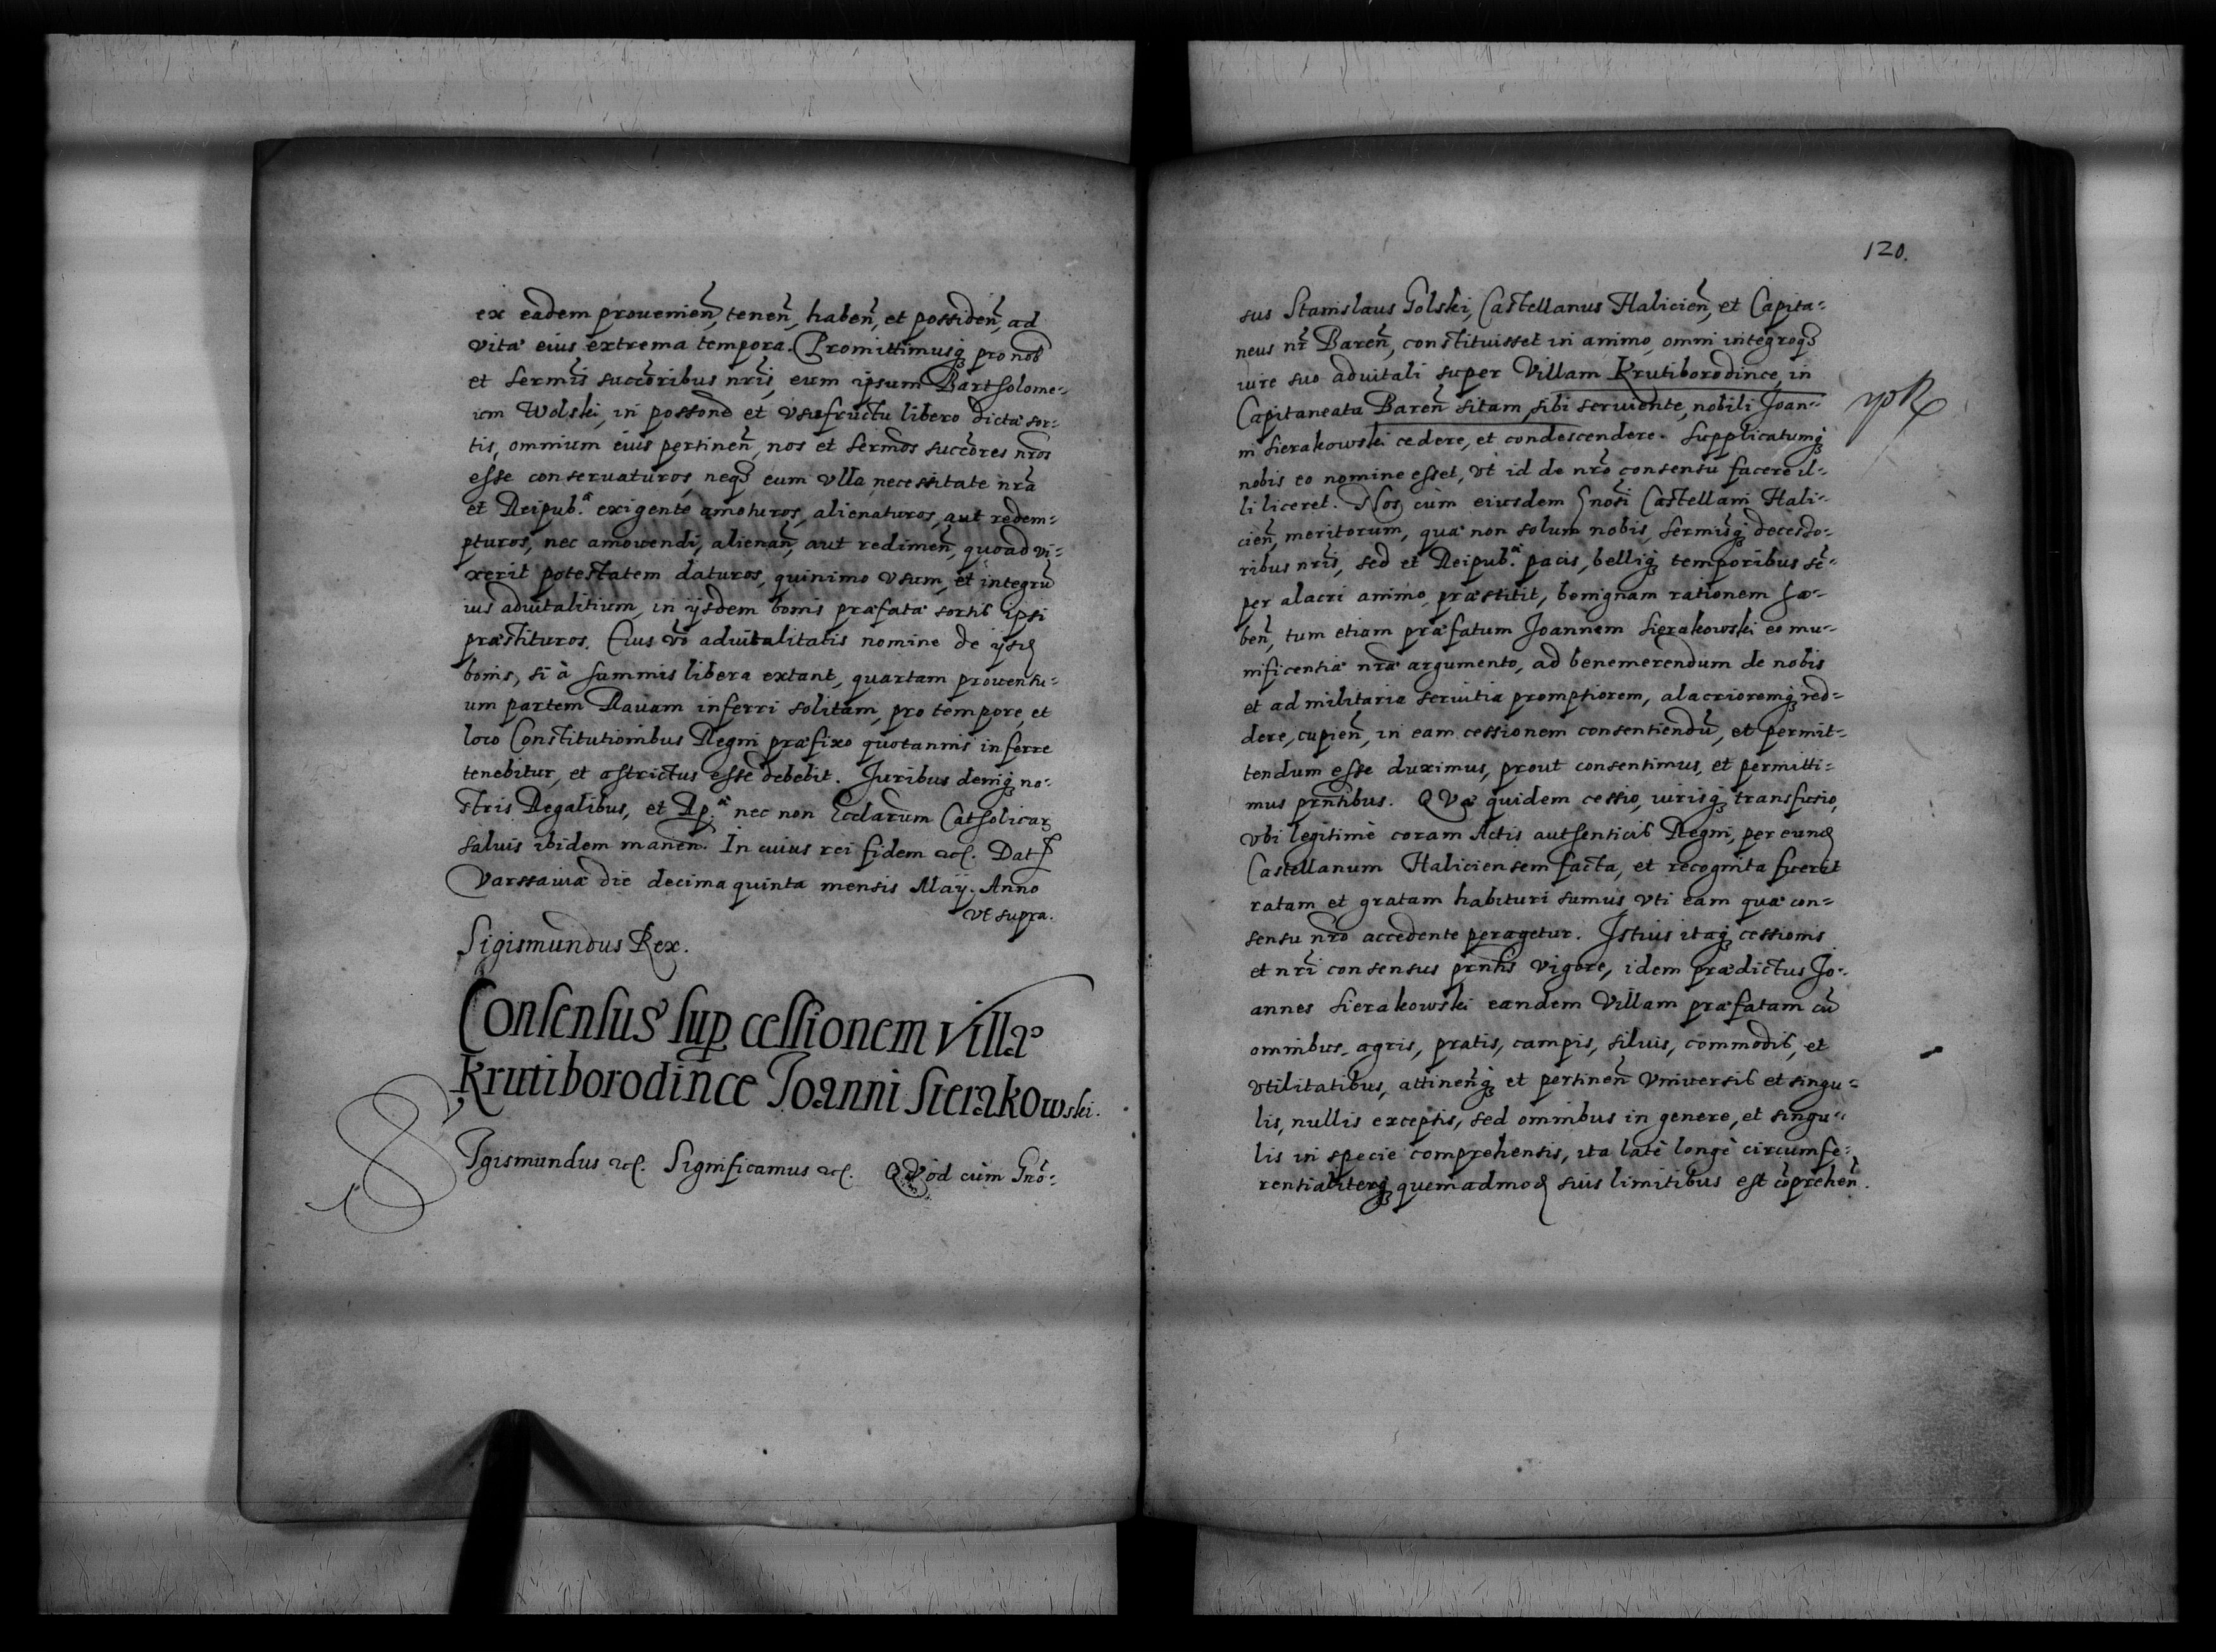 ex eadem prouenien̄, tenen̄, haben̄, et possiden̄, ad
vitæ eius extrema tempora. Promittimusq; pro nob
et sermis̄ succoribus nrīs, eum ipsum Bartholome-
um Wolski, in possone et vsufructu libero dictæ sor-
tis, omnium eius pertinen̄, nos et sermos̄ succores nros
esse conseruaturos, neq; eum vlla necessitate nrā
et Reipub.æ exigente amoturos, alienaturos, aut redem-
pturos, nec amouendi, alienan̄, aut redimen̄, quoad vi-
xerit potestatem daturos, quinimo vsum, et integrū
ius aduitalitium, in ijsdem bonis præfatæ sortis ipsi
præstituros. Eius vō aduitalitatis nomine de ijsd
bonis, si à summis libera extant, quartam prouentu-
um partem Rauam inferri solitam, pro tempore, et
loco Constitutionibus Regni præfixo quotannis inferre
tenebitur, et astrictus esse debebit. Juribus deniq; no-
stris Regalibus, et Rp.æ nec non Ecclarum Catholicar
saluis ibidem manen̄. In cuius rei fidem etc. Dat
Varssauiæ die decima quinta mensis Maij. Anno
vt supra.
Sigismundus Rex.
Consensus sup cessionem Villæ
Krutiborodince Joanni Sierakowski.
SIgismundus etc. Significamus etc. QVod cùm Gnō-
120.
sus Stanislaus Golski, Castellanus Halicien̄, et Capita-
neus nr̄ Baren̄, constituisset in animo, omni integroq;
iure suo aduitali super Villam Krutiborodince, in
Capitaneatu Baren̄ sitam, sibi seruiente, nobili Joan-
ni Sierakowski cedere, et condescendere. Supplicatumq;
nobis eo nomine esset, vt id de nrō consensu facere il-
li liceret. Nos cùm eiusdem Gnosi Castellani Hali-
cien̄, meritorum, quæ non solum nobis, sermisq; decesso-
ribus nrīs, sed et Reipub.æ pacis, belliq; temporibus sē-
per alacri animo præstitit, benignam rationem ha-
ben̄, tum etiam præfatum Joannem Sierakowski eo mu-
nificentiæ nræ argumento, ad benemerendum de nobis
et ad militaria seruitia promptiorem, alacrioremq; red-
dere, cupien̄, in eam cessionem consentiendū, et permit-
tendum esse duximus, prout consentimus, et permitti-
mus prntibus. QVæ quidem cessio, iurisq; transfusio,
vbi legitimè coram Actis authenticis Regni, per eund
Castellanum Haliciensem facta, et recognita fuerit
ratam et gratam habituri sumus vti eam quæ con-
sensu nrō accedente peragetur. Istius itaq; cessionis
et nrī consensus prntis vigore, idem prædictus Jo-
annes Sierakowski eandem Villam præfatam cū
omnibus, agris, pratis, campis, siluis, commodis, et
vtilitatibus, attinen̄q; et pertinen̄ Vniuersis et singu-
lis, nullis exceptis, sed omnibus in genere, et singu-
lis in specie comprehensis, ita latè longè circumfe-
rentialiterq; quemadmod suis limitibus est cōprehen̄.